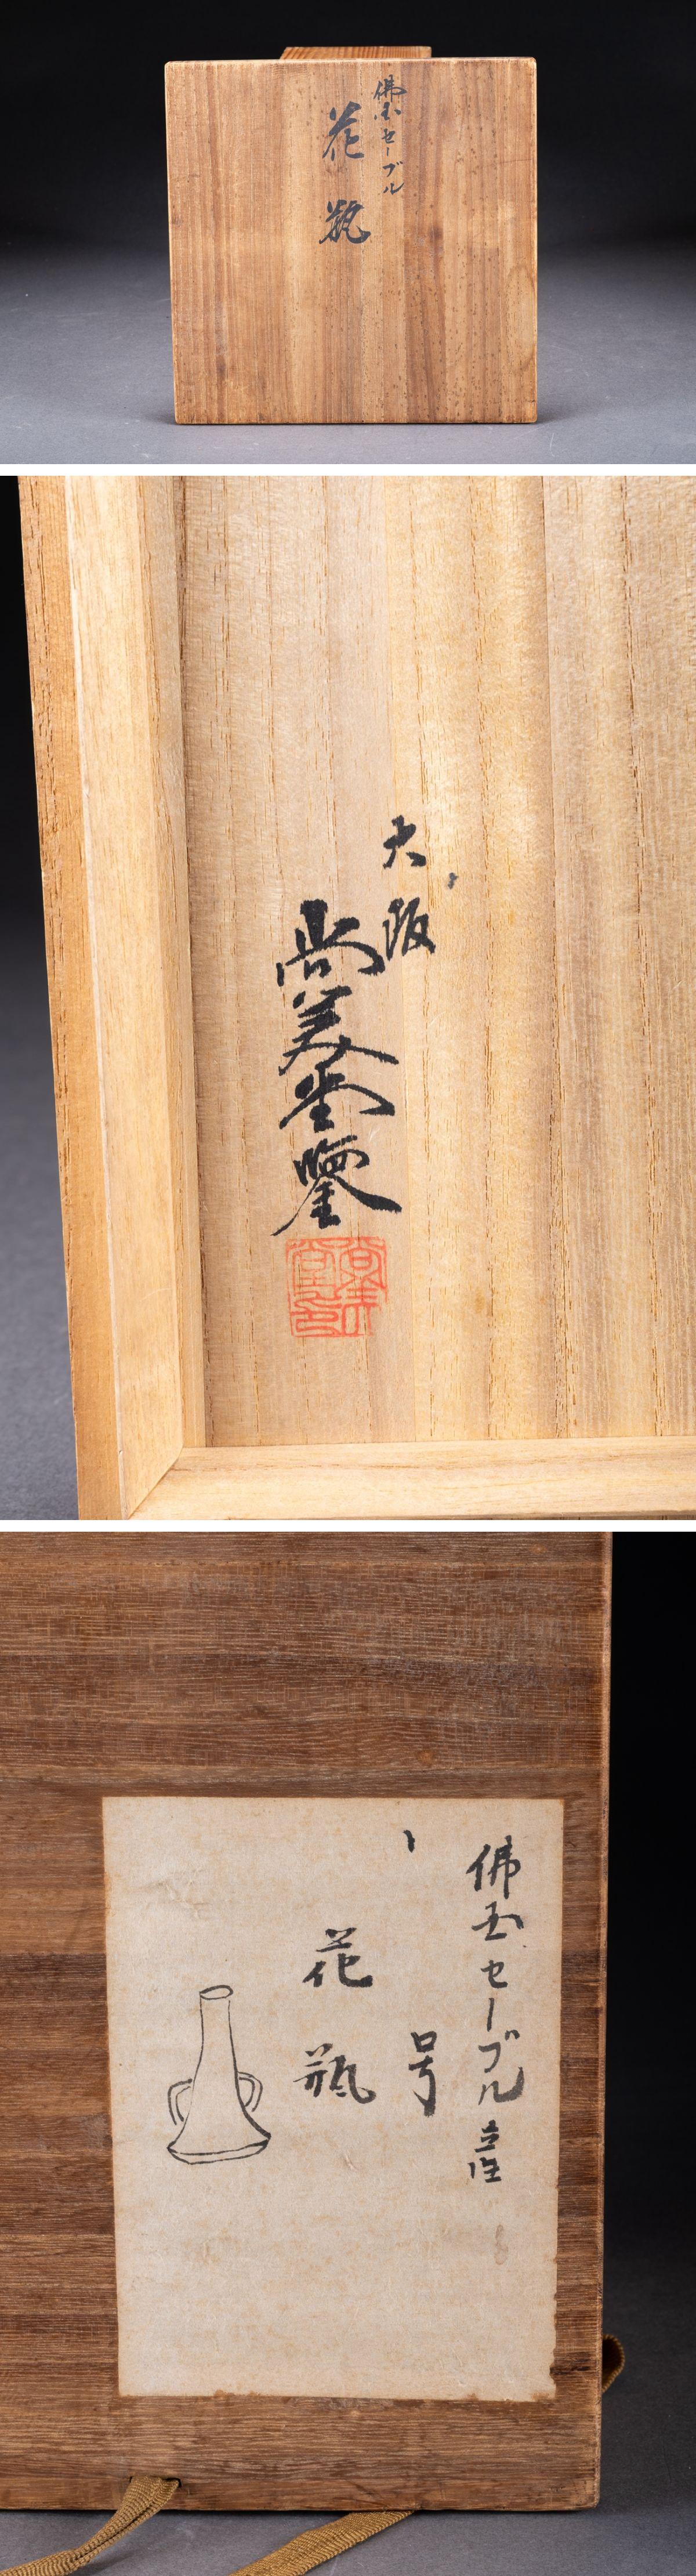 佛国セーブル
花瓶
大阪
尚美堂鑒
佛国セーブル産
号
花瓶